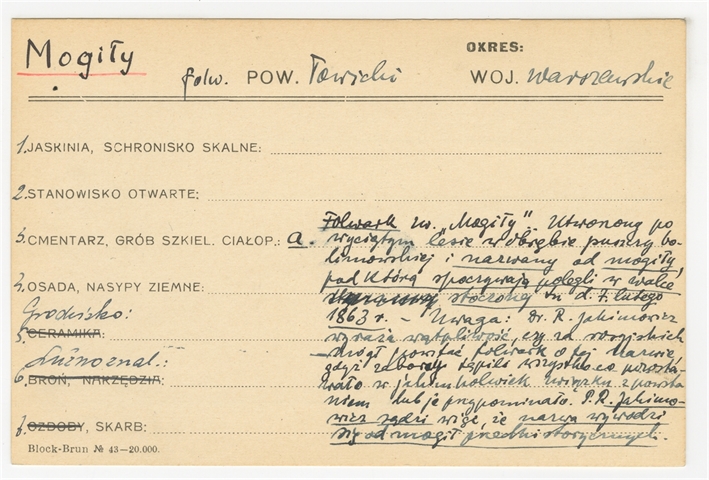 Mogiły
OKRES:
folw. POW. Łowicki WOJ. Warszawskie
1. JASKINIA, SCHRONISKO SKALNE:
2. STANOWISKO OTWARTE:
3. CMENTARZ, GRÓB SZKIEL. CIAŁOP.: a.
Folwark zw. „Mogiły”. Utworzony po
wyciętym lesie w obrębie puszczy bo-
limowskiej i nazwany od mogiły,
pod którą spoczywają polegli w walce
stoczonej tu d. 7. lutego
1863 r. – Uwaga: Dr. R. Jakimowicz
wyraża wątpliwość, czy za rosyjskich
mógł powstać folwark o tej nazwie,
gdyż zaborcy tępili wszystko co pozosta-
wało w jakimkolwiek związku z powsta
niem lub je przypominało. P. R. Jakimo-
wicz sądzi więc, że nazwa wywodzi
się od mogił przedhistorycznych.
OSADA, NASYPY ZIEMNE:
Grodzisko:
5. CERAMIKA:
Luźnoznal.:
6. BROŃ, NARZĘDZIA:
OZDOBY, SKARB:
Block-Brun № 43—20.000.